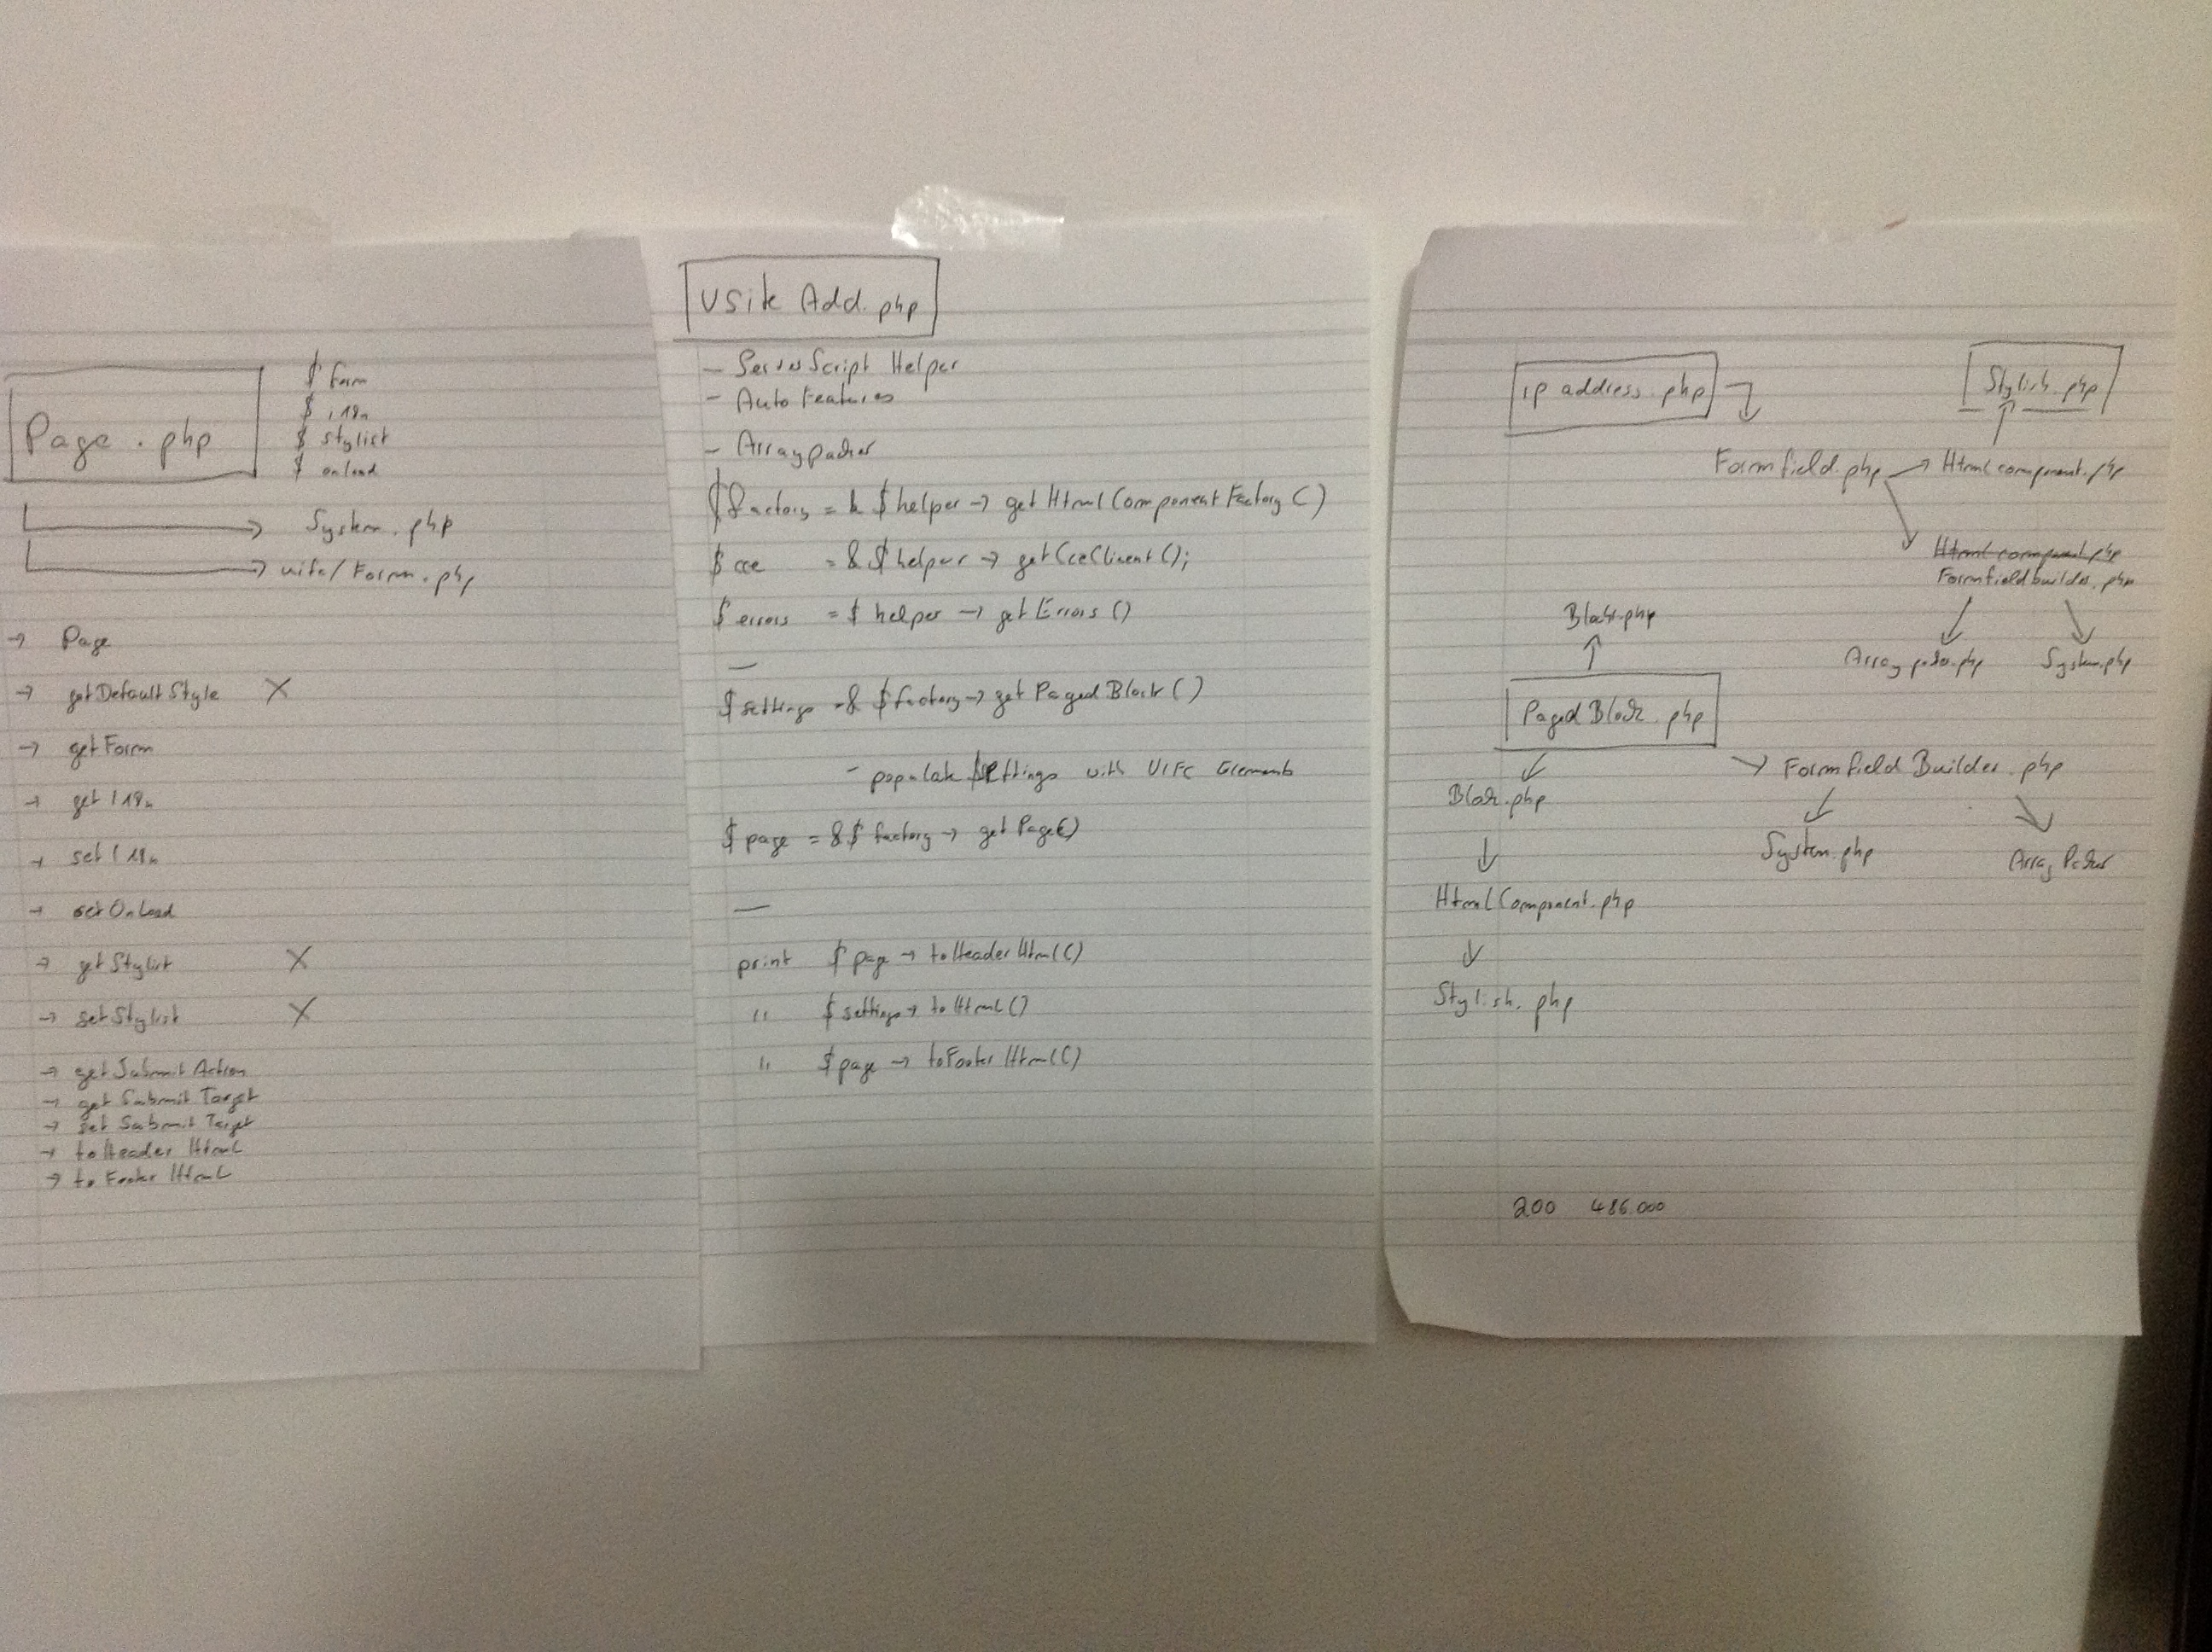 Page.php
$ form
$ i18n
$ stylist
$ onload
System.php
uifc/Form.php
→ Page
→ getDefaultStyle X
→ getForm
→ get I18n
→ set I18n
→ setOnLoad
→ getStylist X
→ setStylist X
→ getSubmit Action
→ get Submit Target
→ set Submit Target
→ toHeader Html
→ to Footer Html
VSite Add.php
- ServerScript Helper
- Auto Features
- Arraypacker
$factory = & $helper → getHtmlComponentFactory()
$cce = & $helper → getCceClient();
$errors = $helper → getErrors()
—
$settings = & $factory → get PagedBlock()
- populate $settings with UIFC Elements
$page = & $factory → getPage()
—
print $page → toHeaderHtml()
" $settings → toHtml()
" $page → toFooterHtml()
ip address.php
Stylish.php
Formfield.php → Html component.php
Html component.php
Formfieldbuilder.php
Block.php
Array packer.php System.php
Paged Block.php
→ FormfieldBuilder.php
Block.php
System.php Array Packer
HtmlComponent.php
Stylish.php
200 486.000